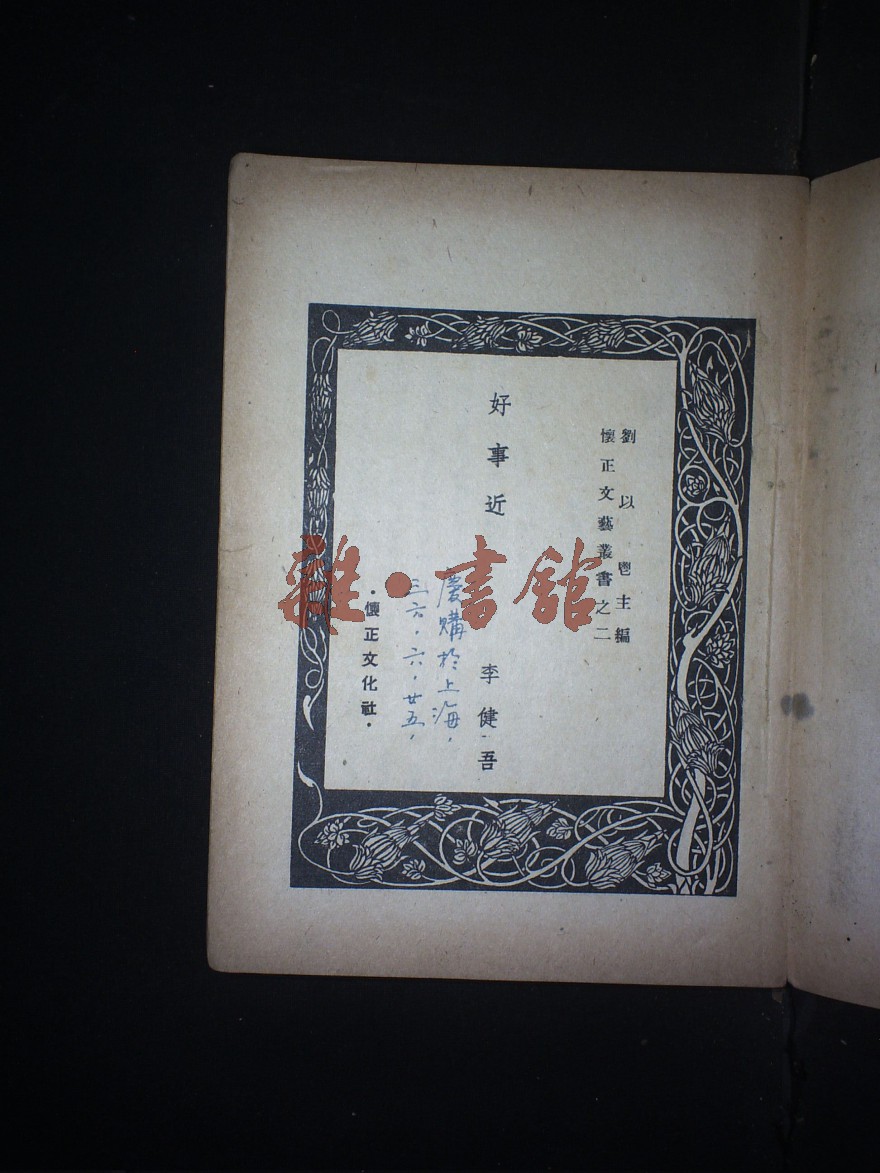 劉以鬯主編
懷正文藝叢書之二
好事近
李健吾
慶購於上海，
三六，六，廿五，
·懷正文化社·
雜·書館